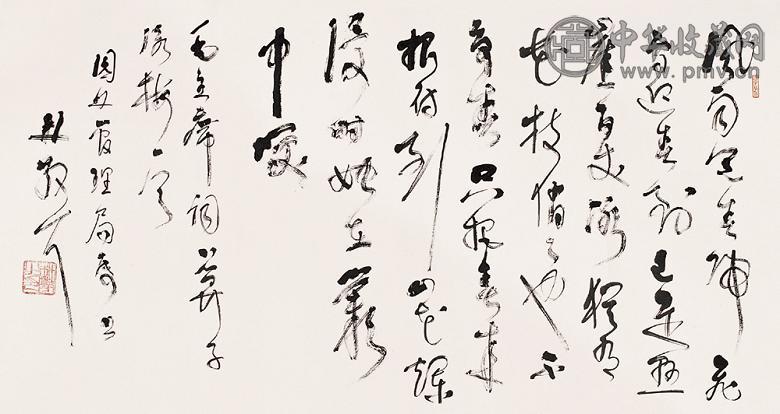 风雨送春归飞
雪迎春到已是悬
崖百丈冰犹有
花枝俏々也不
争春只把春来
报待到山花烂
漫时她在丛
中笑
毛主席词卜算子
咏梅一首
管理局
林散耳
中华收藏网
www.pmv.cn